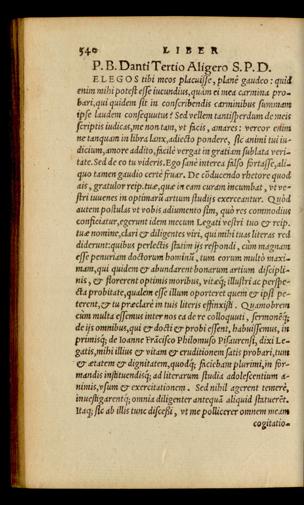 540 LIBER
P. B. Danti Tertio Aligero S. P. D.
ELEGOS tibi meos placuisse, planè gaudeo: quid
enim mihi potest esse iucundius, quàm ei mea carmina pro-
bari, qui quidem sit in conscribendis carminibus summam
ipse laudem consequutus? Sed vellem tantisperdum de meis
scriptis iudicas, me non tam, vt facis, amares: vereor enim
ne tanquam in libra lanx, adiecto pondere, sic animi tui iu-
dicium, amore addito, facilè vergat in gratiam sublata veri-
tate. Sed de eo tu videris. Ego sanè interea falso fortasse, ali-
quo tamen gaudio certè fruar. De cōducendo rhetore quod
ais, gratulor reip. tuæ, quæ in eam curam incumbat, vt ve-
stri iuuenes in optimarū artium studijs exerceantur. Quòd
autem postulas vt vobis adiumento sim, quò res commodius
conficiatur, egerunt idem mecum Legati vestri tuo & reip.
tuæ nomine, clari & diligentes viri, qui mihi tuas literas red
diderunt: quibus perlectis statim ijs respondi, cùm magnam
esse penuriam doctorum hominū, tum eorum multò maxi-
mam, qui quidem & abundarent bonarum artium discipli-
nis, & florerent optimis moribus, vitaq́; illustri ac perspe-
cta probitate, qualem esse illum oporteret quem & ipsi pe-
terent, & tu præclarè in tuis literis effinxisti. Quamobrem
cùm multa essemus inter nos ea de re colloquuti, sermonéq́;
de ijs omnibus, qui & docti & probi essent, habuissemus, in
primisq́; de Ioanne Frācisco Philomuso Pisaurensi, dixi Le-
gatis, mihi illius & vitam & eruditionem satis probari, tum
& ætatem & dignitatem, quodq́; faciebam plurimi, in for-
mandis instituendisq́; ad literarum studia adolescentium a-
nimis, vsum & exercitationem. Sed nihil agerent temerè,
inuestigarentq́; omnia diligenter antequā aliquid statuerēt.
Itaq́; sic ab illis tunc discessi, vt me pollicerer omnem meam
cogitatio-